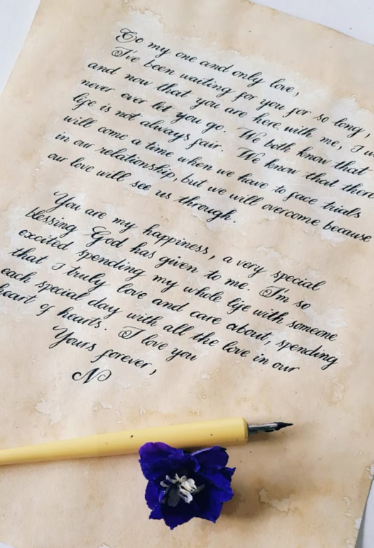 To my one and only love,
I've been waiting for you for so long,
and now that you are here with me, I w
never ever let you go. We both know that
life is not always fair. We know that ther
will come a time when we have to face trials
in our relationship, but we will overcome because
our love will see us through.
You are my happiness, a very special
blessing God has given to me. I'm so
excited spending my whole life with someone
that I truly love and care about, spending
each special day with all the love in our
heart of hearts. I love you
Yours
forever,
N